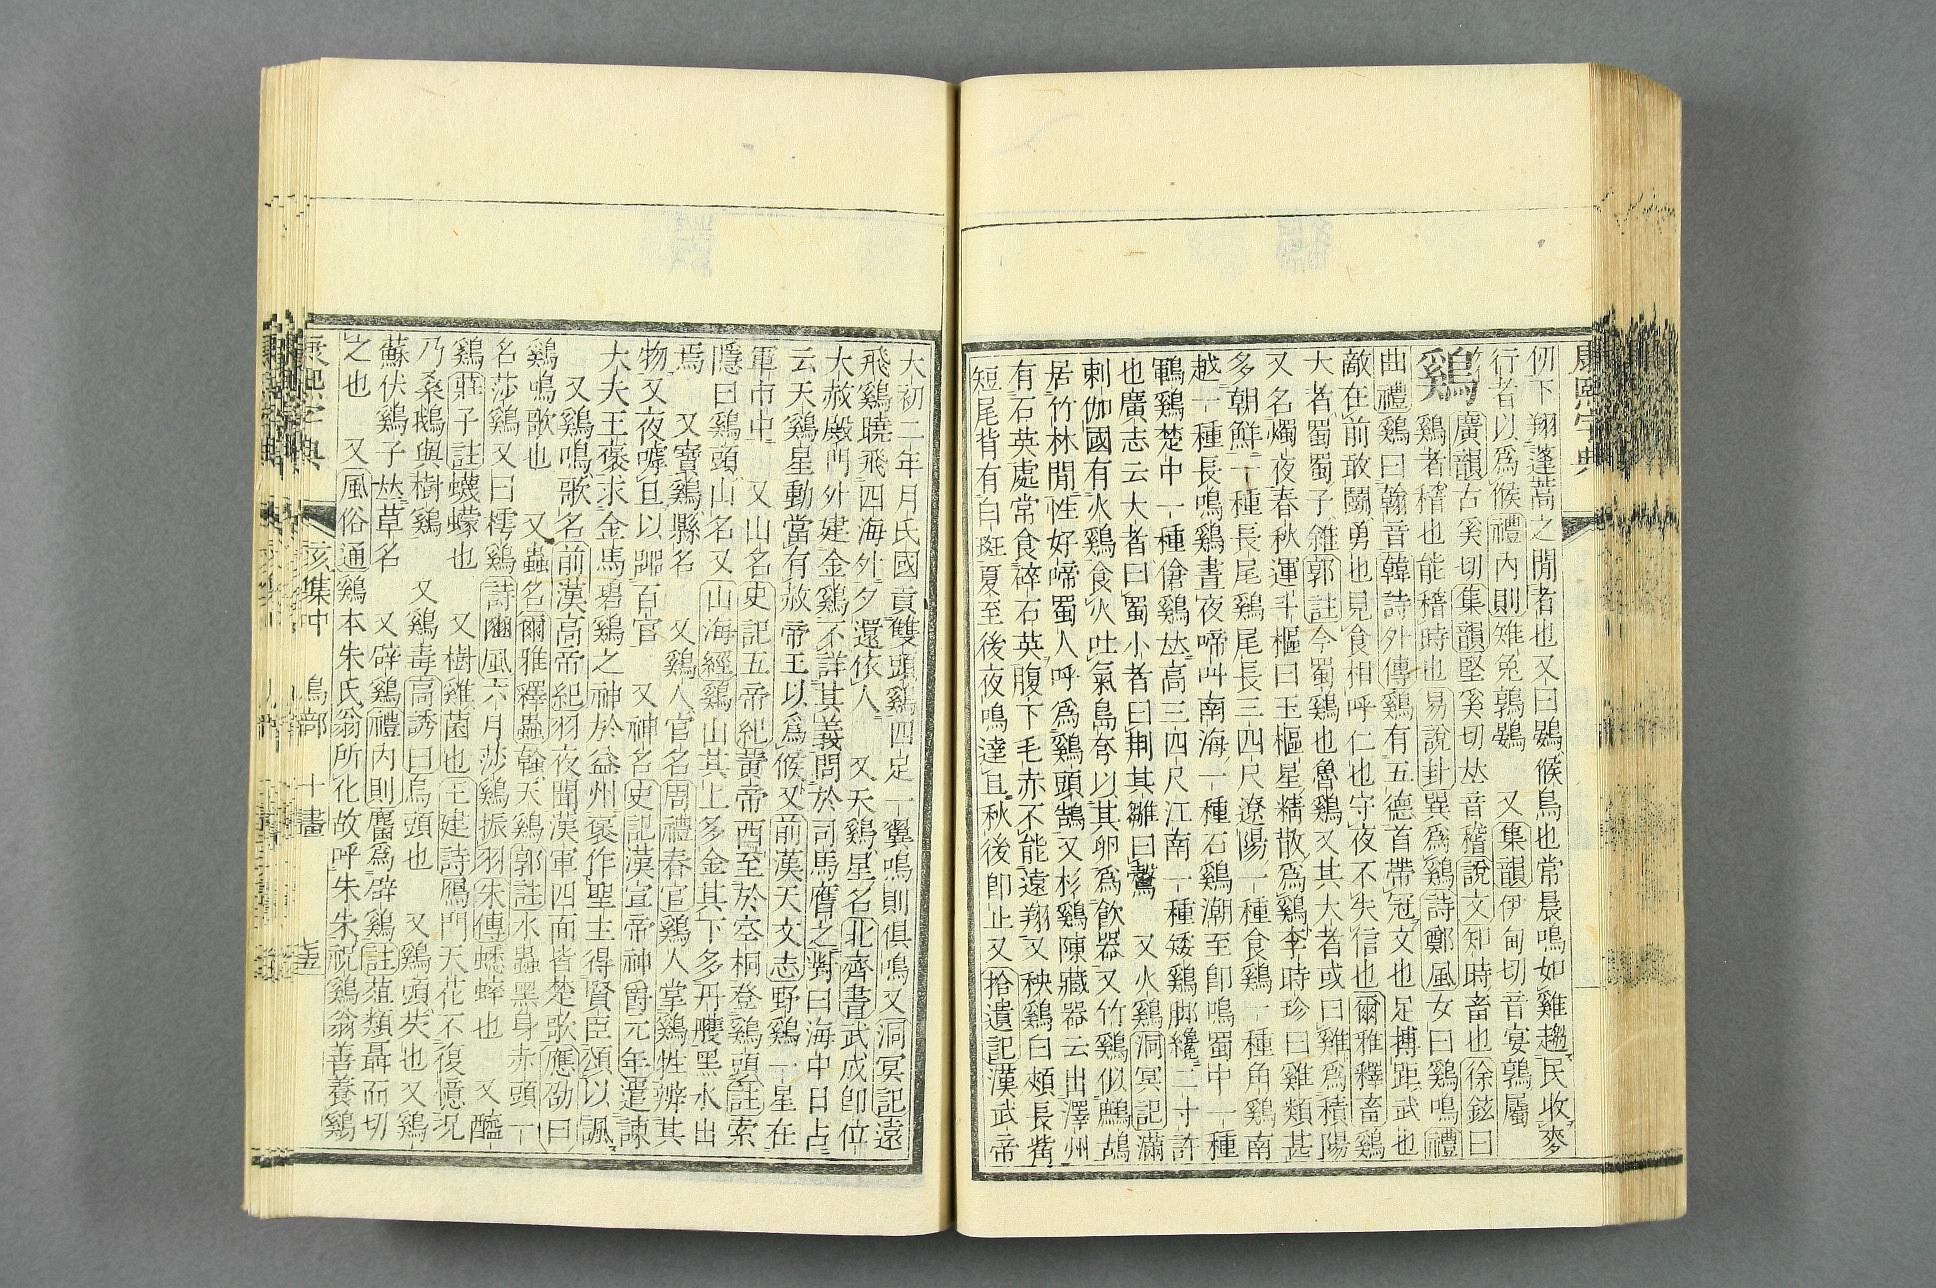 康熙字典
仞下翔蓬蒿之閒者也又曰鷃候鳥也常晨鳴如雞趨民收麥
行者以爲候禮內則雉兔鶉鷃　又集韻伊甸切音宴鶉屬
鷄　廣韻古奚切集韻堅奚切𠀤音稽說文知時畜也徐鉉曰
鷄者稽也能稽時也易說卦巽爲鷄詩鄭風女曰鷄鳴禮
曲禮鷄曰翰音韓詩外傳鷄有五德首帶冠文也足搏距武也
敵在前敢鬭勇也見食相呼仁也守夜不失信也爾雅釋畜鷄
大者蜀蜀子雓郭註今蜀鷄也魯鷄又其大者或曰雞爲積陽
又名燭夜春秋運斗樞曰玉樞星精散爲鷄李時珍曰雞類甚
多朝鮮一種長尾鷄尾長三四尺遼陽一種食鷄一種角鷄南
越一種長鳴鷄晝夜啼叫南海一種石鷄潮至卽鳴蜀中一種
鶤鷄楚中一種傖鷄𠀤高三四尺江南一種矮鷄脚纔二寸許
也廣志云大者曰蜀小者曰荆其雛曰鷇　又火鷄洞冥記滿
剌伽國有火鷄食火吐氣島夸以其卵爲飮器又竹鷄似鷓鴣
居竹林閒性好啼蜀人呼爲鷄頭鶻又杉鷄陳藏器云出澤州
有石英處常食碎石英腹下毛赤不能遠翔又秧鷄白頰長觜
短尾背有白斑夏至後夜鳴達旦秋後卽止又拾遺記漢武帝
太初二年月氏國貢雙頭鷄四足一翼鳴則俱鳴又洞冥記遠
飛鷄曉飛四海外夕還依人　又天鷄星名北齊書武成卽位
大赦殿門外建金鷄不詳其義問於司馬膺之對曰海中日占
云天鷄星動當有赦帝王以爲候又前漢天文志野鷄一星在
軍市中　又山名史記五帝紀黃帝西至於空桐登鷄頭註索
隱曰鷄頭山名又山海經鷄山其上多金其下多丹雘黑水出
焉　又寶鷄縣名　又鷄人官名周禮春官鷄人掌鷄牲辨其
物又夜嘑旦以嘂百官　又神名史記漢宣帝神爵元年遣諫
大夫王襃求金馬碧鷄之神於益州襃作聖主得賢臣頌以諷
又鷄鳴歌名前漢高帝紀羽夜聞漢軍四面皆楚歌應劭曰
鷄鳴歌也　又蟲名爾雅釋蟲螒天鷄郭註水蟲黑身赤頭一
名莎鷄又曰樗鷄詩豳風六月莎鷄振羽朱傳蟋蟀也　又醯
鷄莊子註蠛蠓也　又樹雞菌也王建詩鴈門天花不復憶況
乃桑鵝與樹鷄　又鷄毒高誘曰烏頭也　又鷄頭芡也又鷄
蘇伏鷄子𠀤草名　又辟鷄禮內則麕爲辟鷄註葅類聶而切
之也　又風俗通鷄本朱氏翁所化故呼朱朱祝鷄翁善養鷄
康熙字典　亥集中　鳥部　十畫